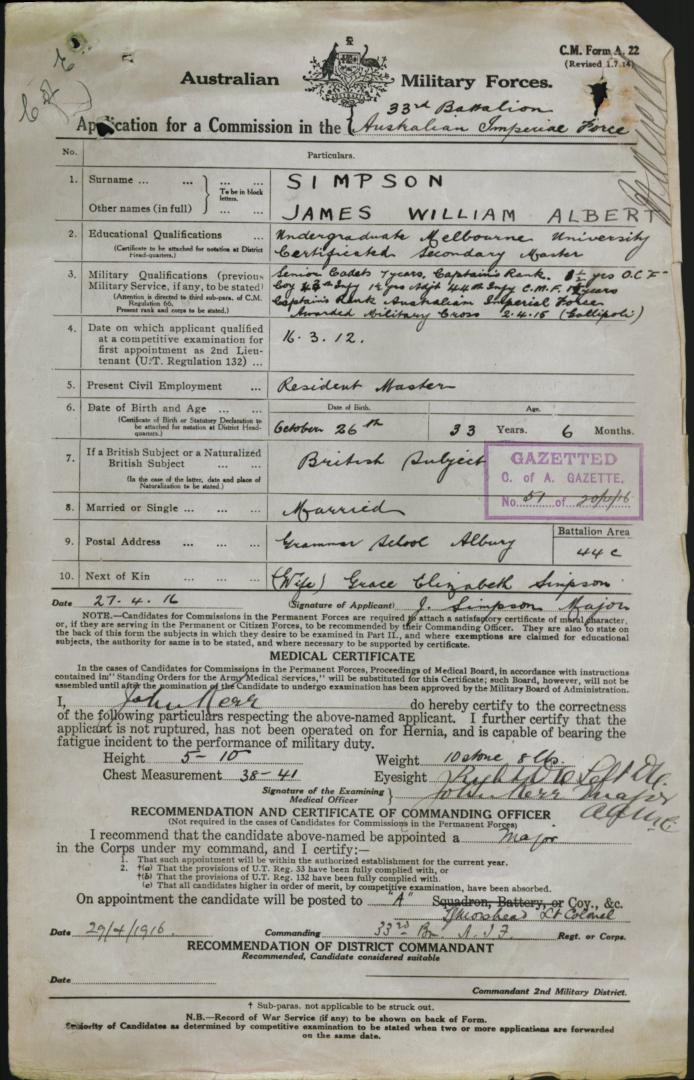 C.M. Form A. 22
(Revised 1.7.14)
Australian Military Forces.
33rd Battalion
Application for a Commission in the Australian Imperial Force
No. Particulars.
1. Surname ... ... ... SIMPSON
To be in block letters.
Other names (in full) ... ... JAMES WILLIAM ALBERT
2. Educational Qualifications ... Undergraduate Melbourne University
(Certificate to be attached for notation at District Head-quarters.) Certificated Secondary Master
3. Military Qualifications (previous Military Service, if any, to be stated)
(Attention is directed to third sub-para. of C.M. Regulation 66. Present rank and corps to be stated.)
Senior Cadets 7 years, Captain's Rank. 1½ yrs O.C F
Coy 43th Infy 1½ yrs Adjt 44th Infy C.M.F. years
Captain's Rank Australian Imperial Force
Awarded Military Cross 2.4.15 (Gallipoli)
4. Date on which applicant qualified at a competitive examination for first appointment as 2nd Lieutenant (U.T. Regulation 132) ... 16.3.12.
5. Present Civil Employment ... Resident Master
6. Date of Birth and Age ... ...
(Certificate of Birth or Statutory Declaration to be attached for notation at District Head-quarters.)
Date of Birth. Age.
October 26th 33 Years. 6 Months.
7. If a British Subject or a Naturalized British Subject ... ... British Subject
(In the case of the latter, date and place of Naturalization to be stated.)
GAZETTED
C. of A. GAZETTE.
No. 51 of
8. Married or Single ... ... ... Married
9. Postal Address ... ... ... Grammar School Albury
Battalion Area
44c
10. Next of Kin ... ... ... (Wife) Grace Elizabeth Simpson
Date 27.4.16 (Signature of Applicant) J. Simpson Major
NOTE.—Candidates for Commissions in the Permanent Forces are required to attach a satisfactory certificate of moral character,
or, if they are serving in the Permanent or Citizen Forces, to be recommended by their Commanding Officer. They are also to state on
the back of this form the subjects in which they desire to be examined in Part II., and where exemptions are claimed for educational
subjects, the authority for same is to be stated, and where necessary to be supported by certificate.
MEDICAL CERTIFICATE
In the cases of Candidates for Commissions in the Permanent Forces, Proceedings of Medical Board, in accordance with instructions
contained in "Standing Orders for the Army Medical Services," will be substituted for this Certificate; such Board, however, will not be
assembled until after the nomination of the Candidate to undergo examination has been approved by the Military Board of Administration.
I, John Kerr do hereby certify to the correctness
of the following particulars respecting the above-named applicant. I further certify that the
applicant is not ruptured, has not been operated on for Hernia, and is capable of bearing the
fatigue incident to the performance of military duty.
Height 5-10 Weight 10 stone 8 lbs.
Chest Measurement 38-41 Eyesight Right Left
Signature of the Examining Medical Officer } John Kerr Major
RECOMMENDATION AND CERTIFICATE OF COMMANDING OFFICER
(Not required in the cases of Candidates for Commissions in the Permanent Forces)
I recommend that the candidate above-named be appointed a Major
in the Corps under my command, and I certify:—
1. That such appointment will be within the authorized establishment for the current year.
2. †(a) That the provisions of U.T. Reg. 33 have been fully complied with, or
†(b) That the provisions of U.T. Reg. 132 have been fully complied with.
(c) That all candidates higher in order of merit, by competitive examination, have been absorbed.
On appointment the candidate will be posted to "A" Squadron, Battery, or Coy., &c.
Morshead Lt Colonel
Date 29/4/1916. Commanding 33rd Bn. A.I.F Regt. or Corps.
RECOMMENDATION OF DISTRICT COMMANDANT
Recommended, Candidate considered suitable
Date
Commandant 2nd Military District.
† Sub-paras. not applicable to be struck out.
N.B.—Record of War Service (if any) to be shown on back of Form.
Seniority of Candidates as determined by competitive examination to be stated when two or more applications are forwarded
on the same date.